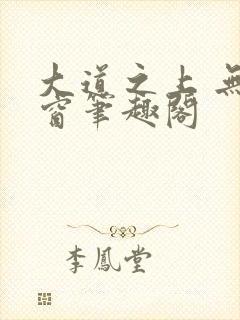 大道之上 無
窗筆趣閣
李鳳堂